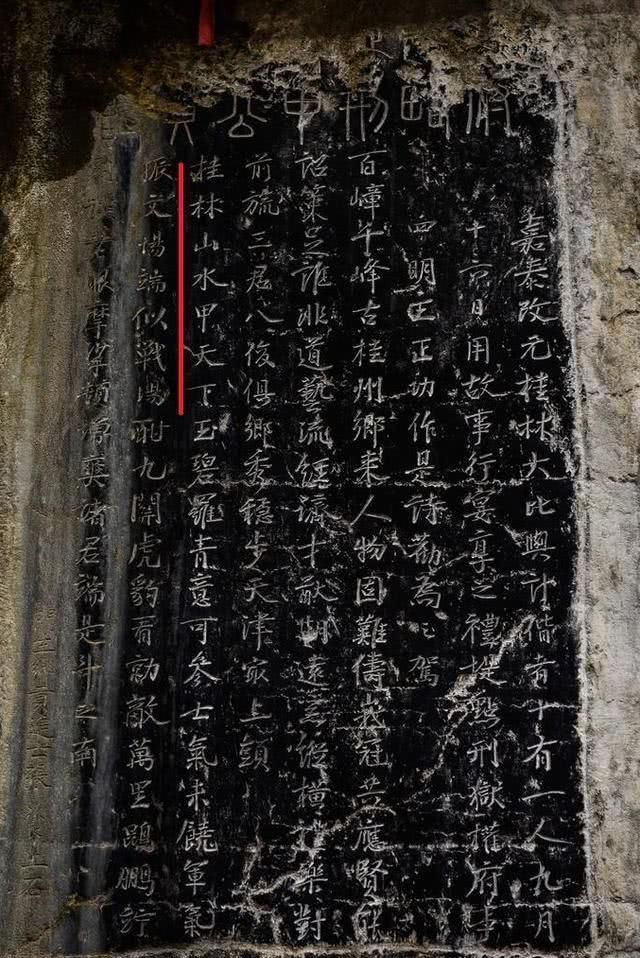 公
嘉泰改元桂林大比與計偕者十有一人九月
十六日用故事行宴享之禮提點刑獄權府事
四明王正功作是詩勸為之駕
百嶂千峰古桂州鄉來人物固難儔峨冠共應賢能
詔策足誰非道藝流經濟才猷期遠器縱橫禮樂對
前旒三君八俊俱鄉秀穩步天津最上頭
桂林山水甲天下玉碧羅青意可參士氣未饒軍氣
振文場端似戰場酣九關虎豹看勍敵萬里鵾鵬佇
老眼摩挲頓增爽諸君端是斗之南
貢進士張上石